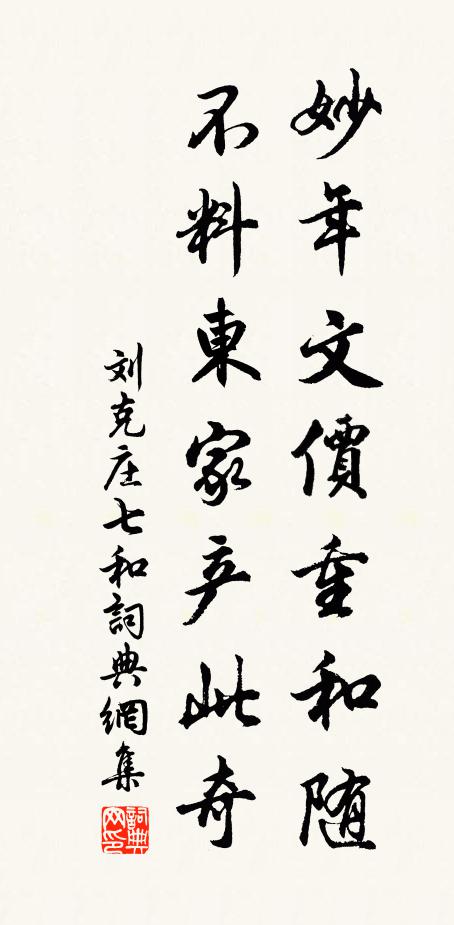 妙年文價重和随
不料東家产此奇
刘克庄七和詞典網集
詞典网印